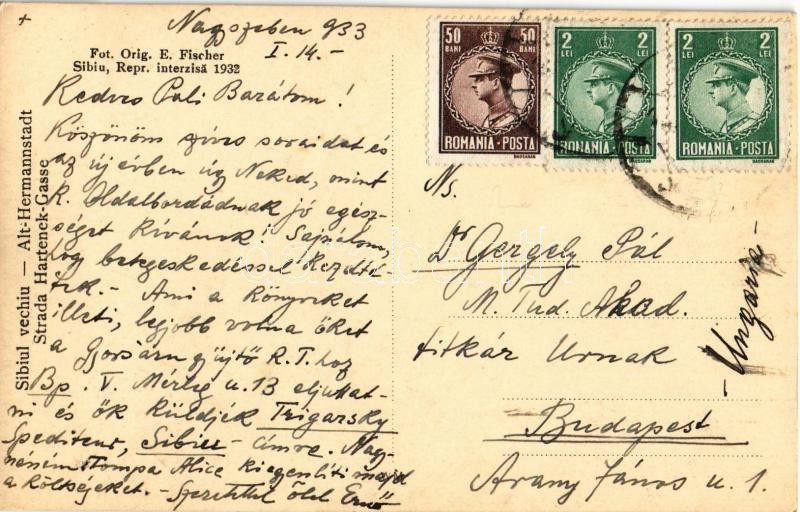 Nagyszeben 933
I. 14.-
Fot. Orig. E. Fischer
Sibiu, Repr. interzisă 1932
Kedves Pali Barátom!
Köszönöm szíves soraidat és
az új évben úgy Neked, mint
k. Oldalbordádnak jó egész-
séget kívánok! Sajnálom,
hogy betegeskedéssel kezdté-
tek. - Ami a könyveket
illeti, legjobb volna őket
a Gyorsárugyűjtő R.T.hoz
Bp. V. Mérleg u. 13 eljuttat-
ni és ők küldjék Trigarsky
Spediteur, Sibiu - címre. Nagy-
néném Tompa Alice kiegyenlíti majd
a költségeket. - Szeretettel ölel Ernő
Sibiul vechiu — Alt-Hermannstadt
Strada Hartenek-Gasse
50 BANI 50 BANI
ROMANIA · POSTA
2 LEI 2 LEI
ROMANIA · POSTA
2 LEI 2 LEI
ROMANIA · POSTA
Ns.
Dr Gergely Pál
M. Tud. Akad.
titkár Urnak
Budapest
Arany János u. 1.
- Ungaria -
darabanth